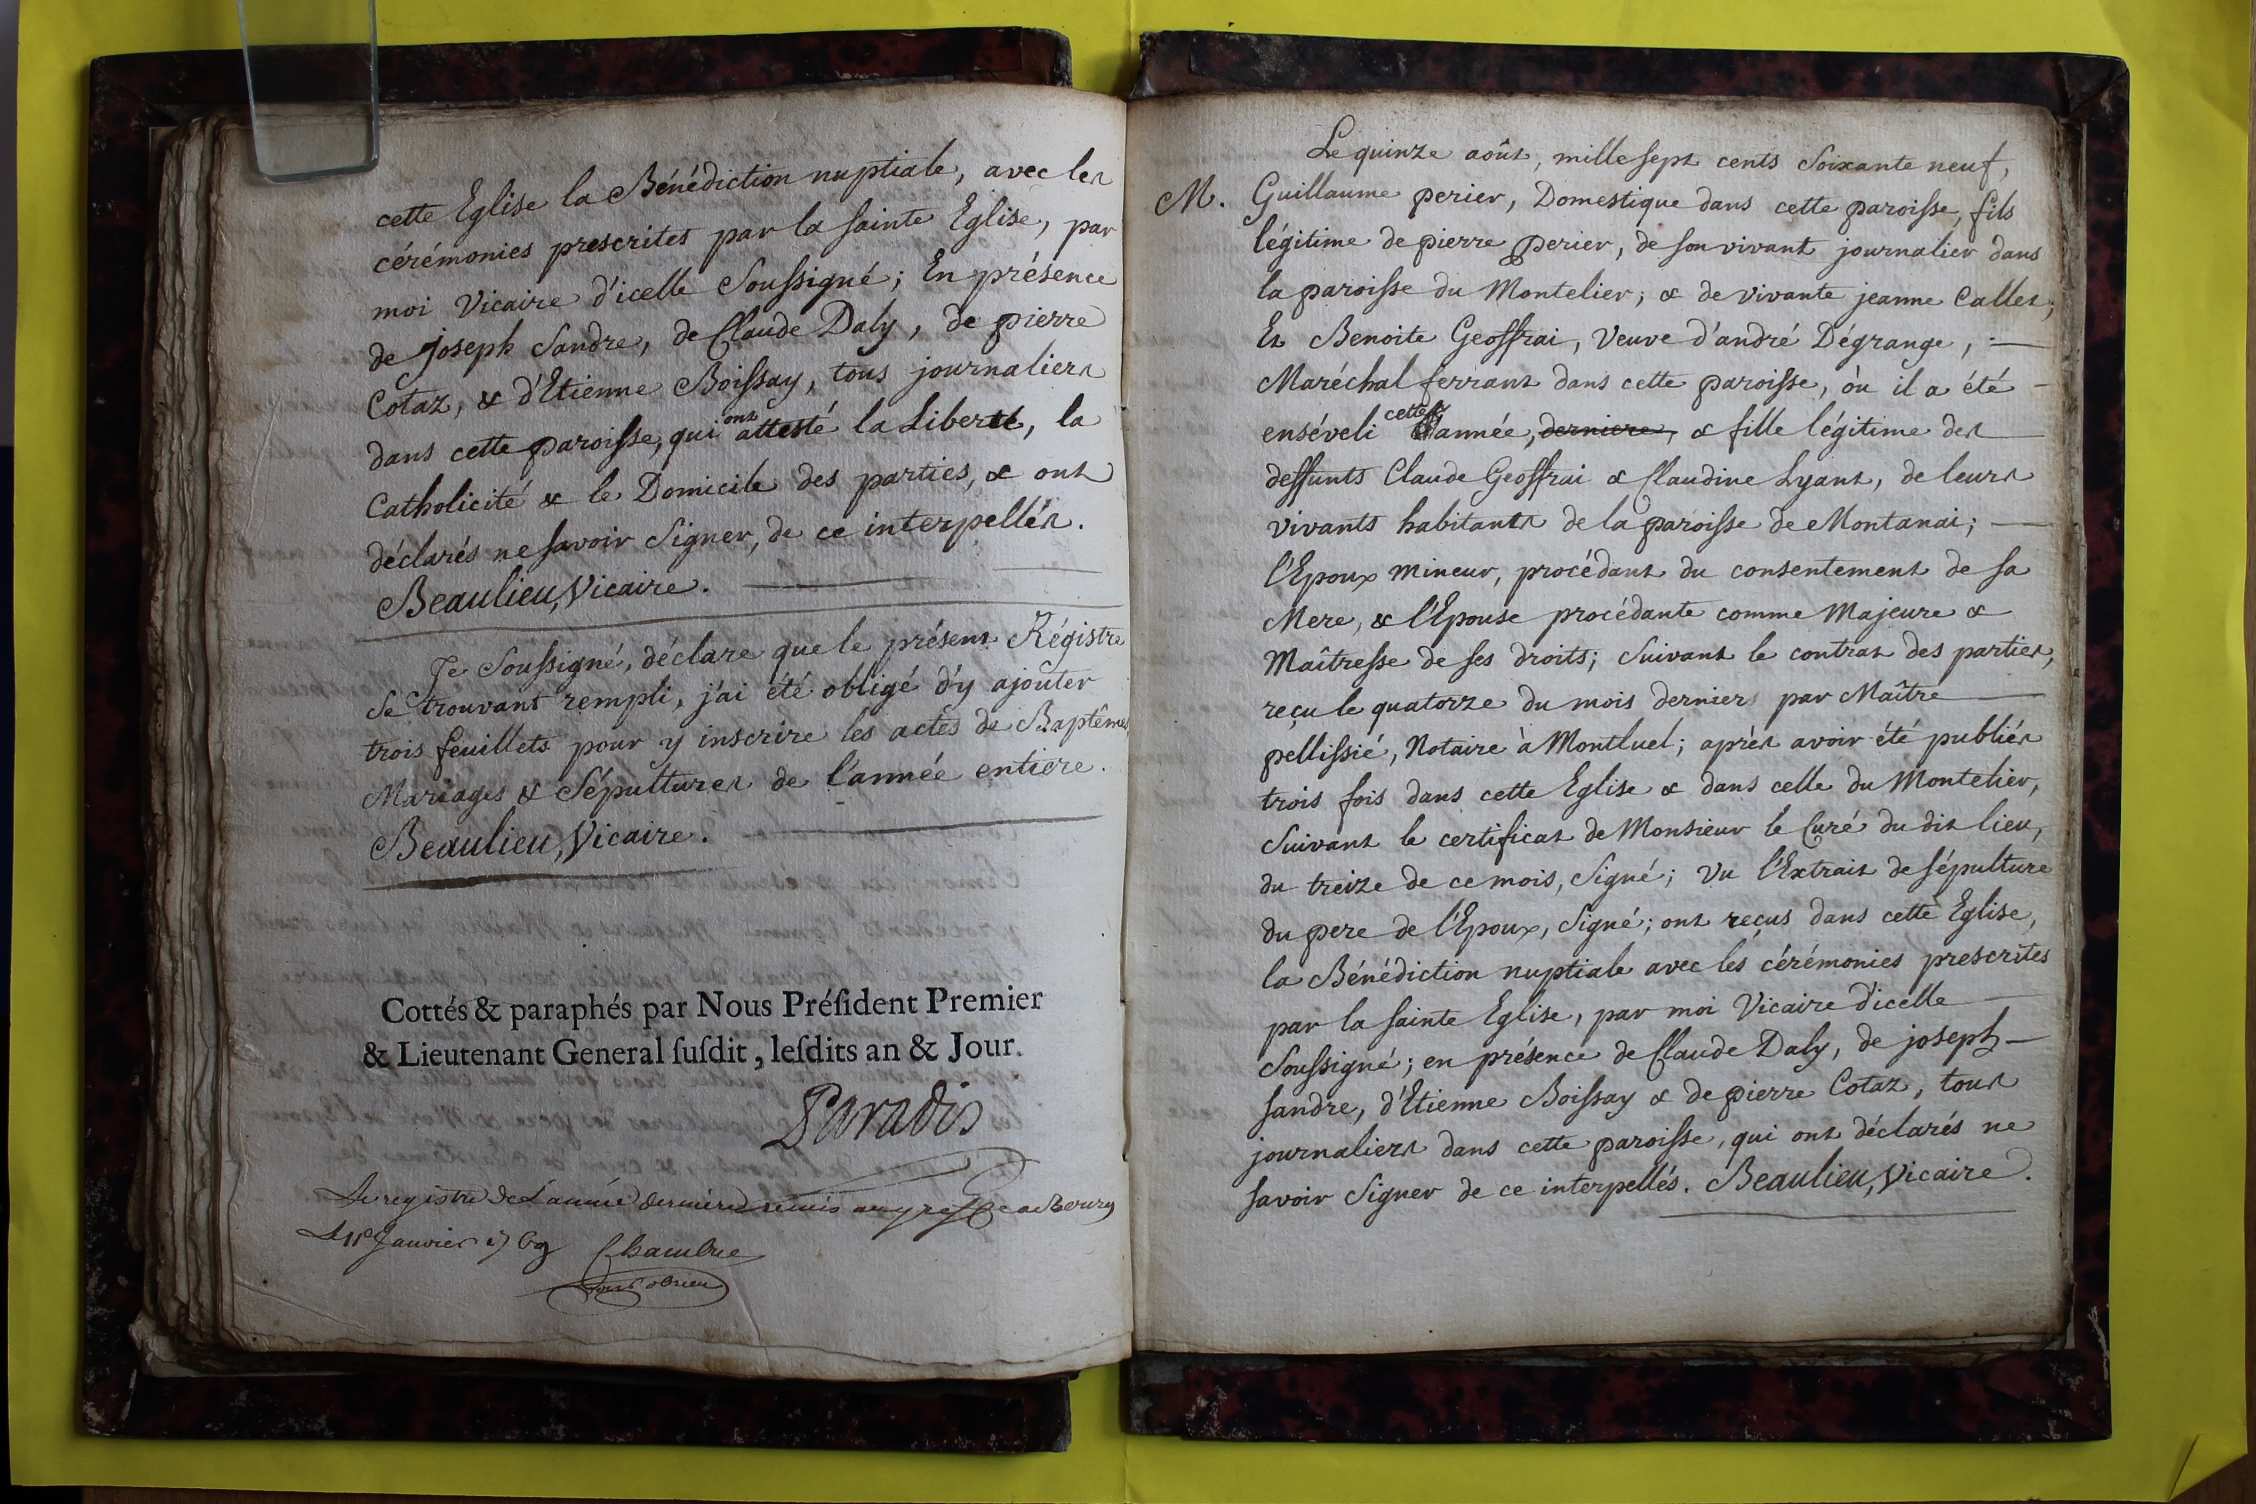 cette Eglise la Bénédiction nuptiale, avec les
cérémonies prescrites par la sainte Eglise, par
moi Vicaire d'icelle Soussigné; En présence
de joseph Sandre, de Claude Daly, de pierre
Cotaz, & d'Etienne Boissay, tous journaliers
dans cette paroisse, qui ont attesté la Liberté, la
Catholicité & le Domicile des parties, & ont
déclarés ne savoir Signer, de ce interpellés.
Beaulieu, Vicaire.
Je Soussigné, déclare que le présent Régistre
se trouvant rempli, j'ai été obligé d'y ajoûter
trois feuillets pour y inscrire les actes de Baptêmes
Mariages & Sépultures de l'année entiere.
Beaulieu, Vicaire.
Cottés & paraphés par Nous Préſident Premier
& Lieutenant General ſuſdit, leſdits an & Jour.
Paradis
Le registre de L'année derniere remis au greffe de Bourg
Le 11e Janvier 1769
Le quinze août, mille sept cents soixante neuf,
M. Guillaume perier, Domestique dans cette paroisse, fils
légitime de pierre perier, de son vivant journalier dans
la paroisse du Montelier; & de vivante jeanne Calles;
Et Benoite Geoffrai, Veuve d'andré Dégrange,
Maréchal ferrant dans cette paroisse, où il a été
enséveli cette année, derniere, & fille légitime des
deffunts Claude Geoffrai & Claudine Lyant, de leurs
vivants habitants de la paroisse de Montanai;
l'Epoux mineur, procédant du consentement de sa
Mere, & l'Epouse procédante comme Majeure &
Maîtresse de ses droits; suivant le contrat des parties,
reçu le quatorze du mois dernier par Maître
pellissié, Notaire à Montluel; après avoir été publiés
trois fois dans cette Eglise & dans celle du Montelier,
suivant le certificat de Monsieur le Curé du dit lieu,
du treize de ce mois, signé; Vu l'Extrait de sépulture
du pere de l'Epoux, signé; ont reçus dans cette Eglise,
la Bénédiction nuptiale avec les cérémonies prescrites
par la sainte Eglise, par moi Vicaire d'icelle
Soussigné; en présence de Claude Daly, de joseph
sandre, d'Etienne Boissay & de pierre Cotaz, tous
journaliers dans cette paroisse, qui ont déclarés ne
savoir Signer de ce interpellés. Beaulieu, Vicaire.